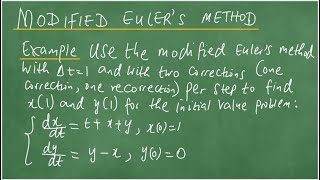 MODIFIED EULER'S METHOD
Example Use the modified Euler's method
with Δt=1 and with two corrections (one
correction, one recorrection) per step to find
x(1) and y(1) for the initial value problem:
{ dx/dt = t+x+y, x(0)=1
dy/dt = y-x, y(0)=0